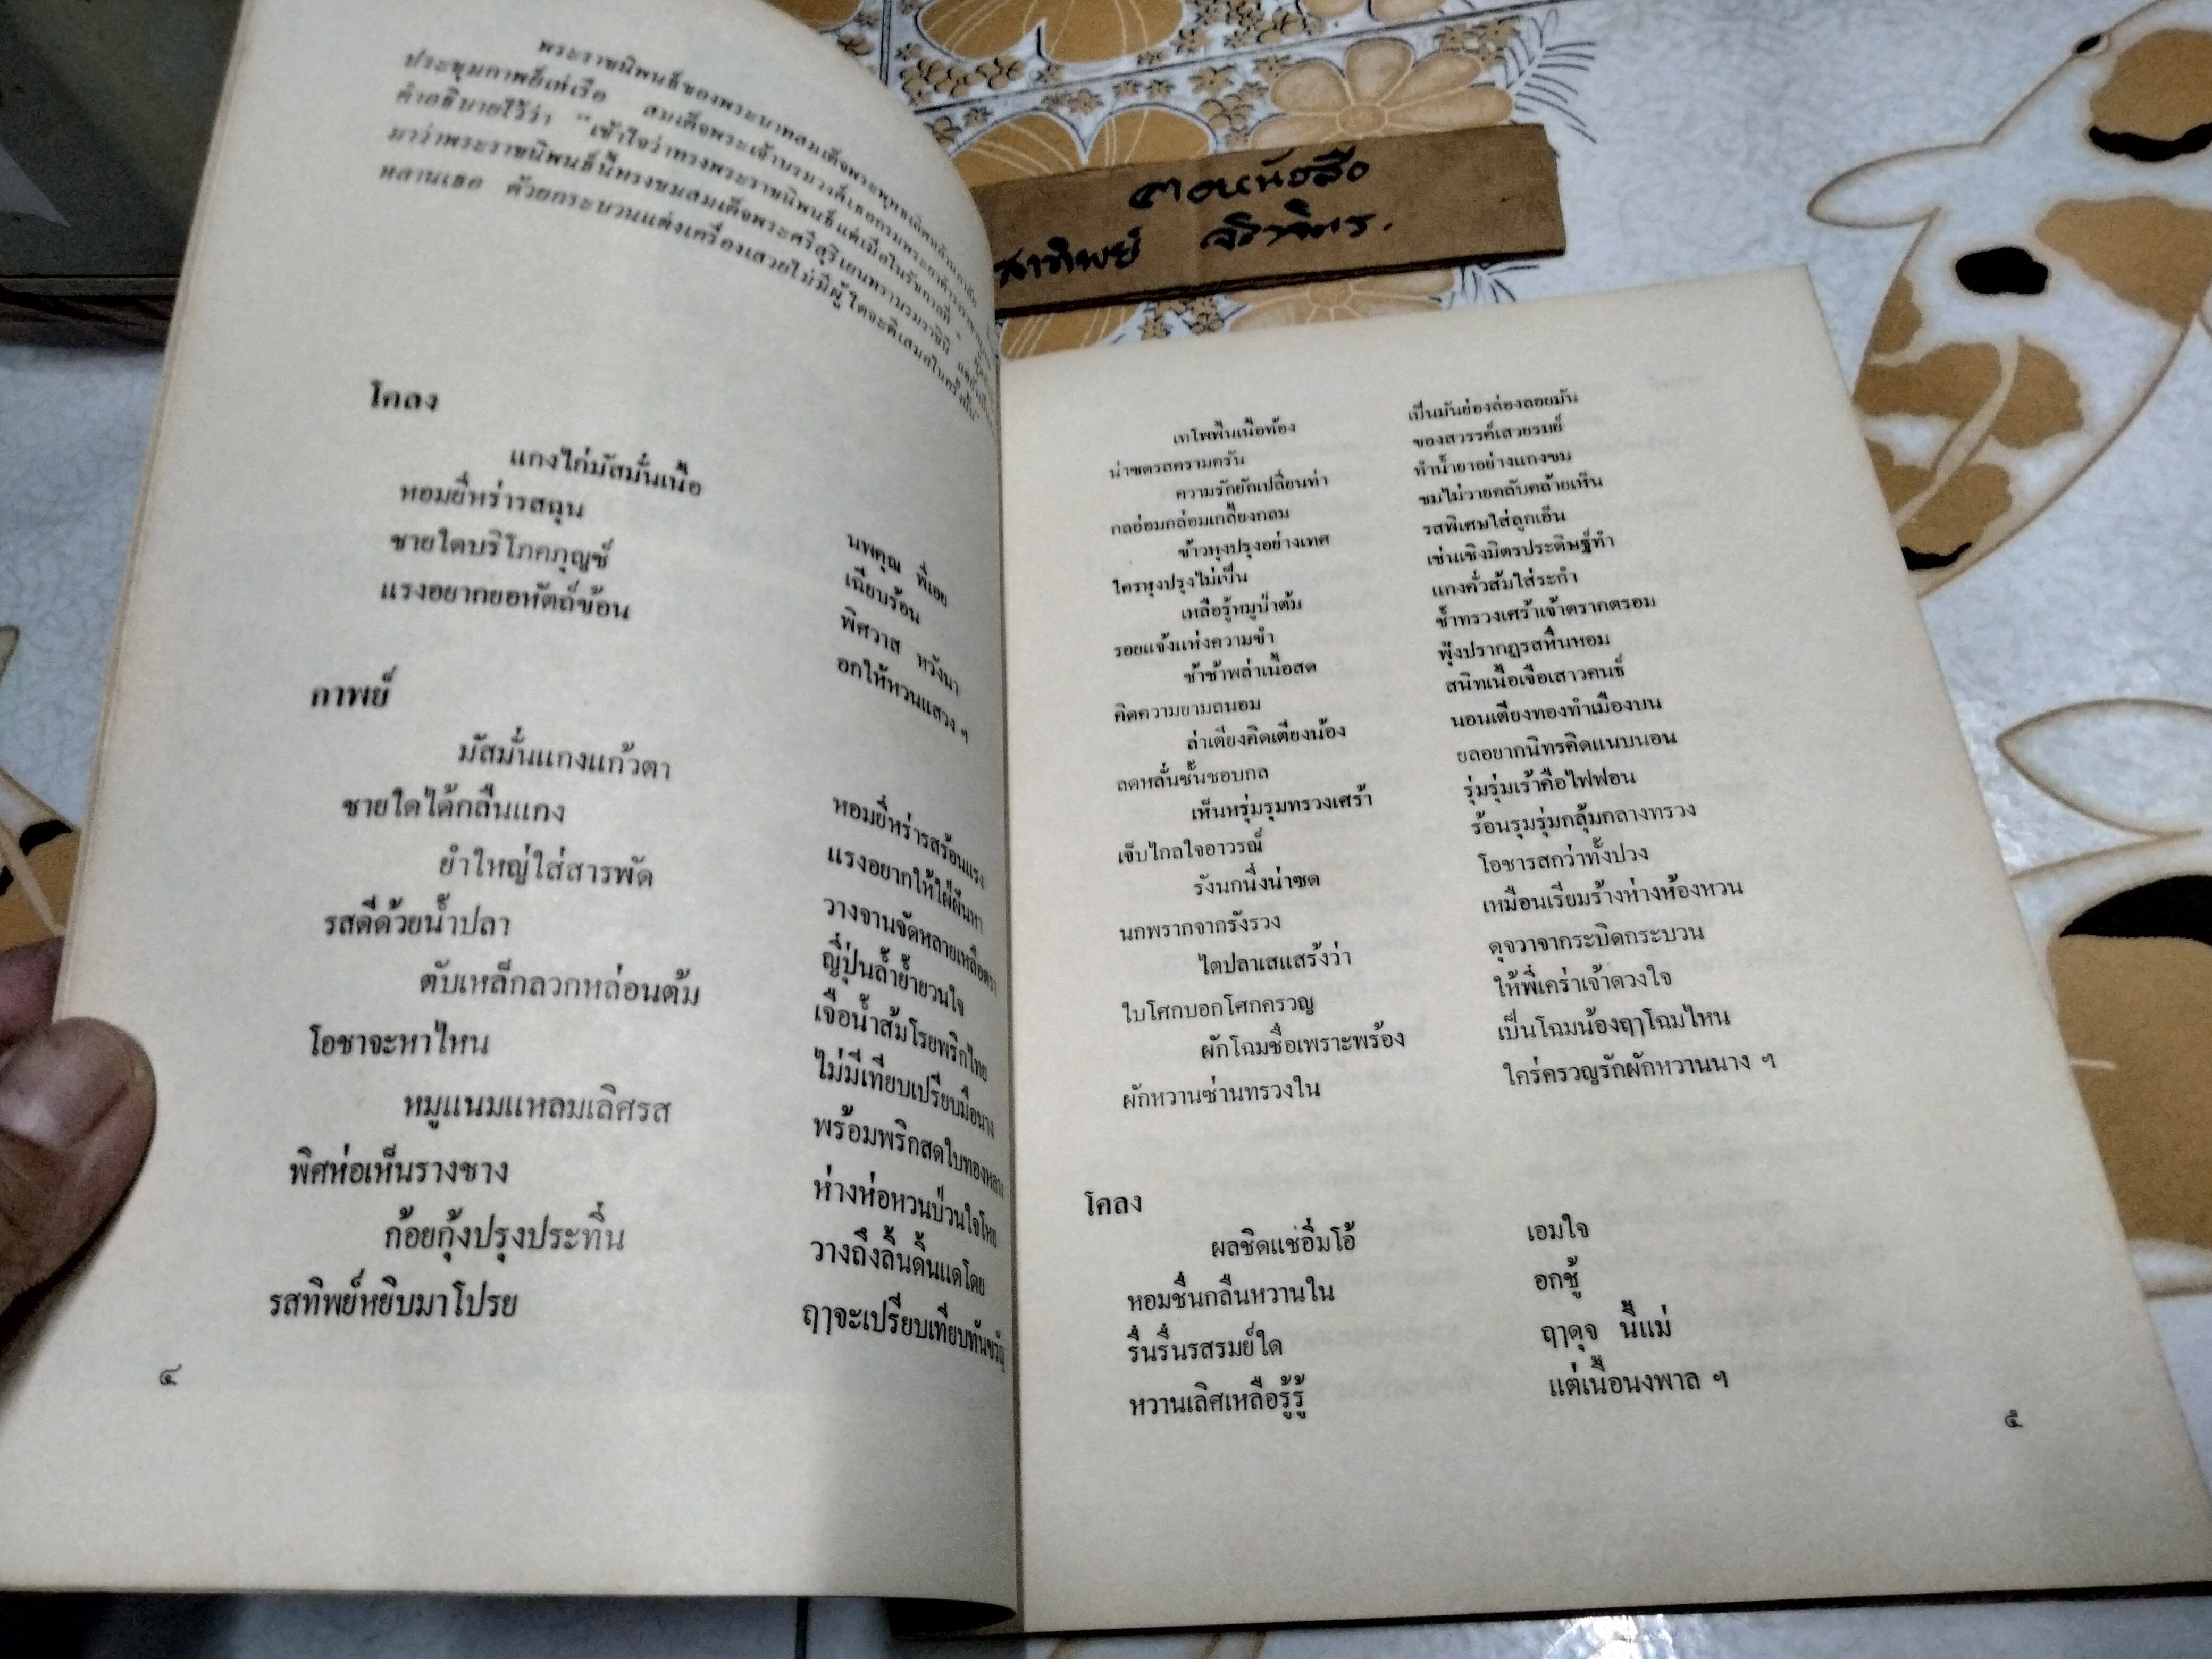 พระราชนิพนธ์ของพระบาทสมเด็จพระพุทธเลิศหล้านภาลัย
ประชุมกาพย์เห่เรือ สมเด็จพระเจ้าบรมวงศ์เธอกรมพระยาดำรงราชานุภาพ
คำอธิบายไว้ว่า "เข้าใจว่าทรงพระราชนิพนธ์แต่เมื่อในรัชกาลที่
มาว่าพระราชนิพนธ์นี้ทรงชมสมเด็จพระศรีสุริเยนทราบรมราชินี
หลานเธอ ด้วยกระบวนแต่งเครื่องเสวยไม่มีผู้ใดจะดีเสมอในครั้งนั้น"
โคลง
แกงไก่มัสมั่นเนื้อ นพคุณ พี่เอย
หอมยี่หร่ารสฉุน เฉียบร้อน
ชายใดบริโภคภุญช์ พิศวาส หวังนา
แรงอยากยอหัตถ์ข้อน อกให้หวนแสวง ฯ
กาพย์
มัสมั่นแกงแก้วตา หอมยี่หร่ารสร้อนแรง
ชายใดได้กลืนแกง แรงอยากให้ใฝ่ฝันหา
ยำใหญ่ใส่สารพัด วางจานจัดหลายเหลือตรา
รสดีด้วยน้ำปลา ญี่ปุ่นล้ำย้ำยวนใจ
ตับเหล็กลวกหล่อนต้ม เจือน้ำส้มโรยพริกไทย
โอชาจะหาไหน ไม่มีเทียบเปรียบมือนาง
หมูแนมแหลมเลิศรส พร้อมพริกสดใบทองหลาง
พิศห่อเห็นรางชาง ห่างห่อหวนป่วนใจโหย
ก้อยกุ้งปรุงประทิ่น วางถึงลิ้นดิ้นแดโดย
รสทิพย์หยิบมาโปรย ฤๅจะเปรียบเทียบทันขวัญ
๔
ตอหนังสือ
สาทิพย์ จิราจิตร.
เทโพพื้นเนื้อท้อง เป็นมันย่องล่องลอยมัน
น่าซดรสครามครัน ของสวรรค์เสวยรมย์
ความรักยักเปลี่ยนท่า ทำน้ำยาอย่างแกงขม
กลอ่อมกล่อมเกลี้ยงกลม ชมไม่วายคลับคล้ายเห็น
ข้าวหุงปรุงอย่างเทศ รสพิเศษใส่ลูกเอ็น
ใครหุงปรุงไม่เป็น เช่นเชิงมิตรประดิษฐ์ทำ
เหลือรู้หมูป่าต้ม แกงคั่วส้มใส่ระกำ
รอยแจ้งแห่งความขำ ช้ำทรวงเศร้าเจ้าตรากตรอม
ช้าช้าพล่าเนื้อสด ฟุ้งปรากฏรสหื่นหอม
คิดความยามถนอม สนิทเนื้อเจือเสาวคนธ์
ล่าเตียงคิดเตียงน้อง นอนเตียงทองทำเมืองบน
ลดหลั่นชั้นชอบกล ยลอยากนิทรคิดแนบนอน
เห็นหรุ่มรุมทรวงเศร้า รุ่มรุ่มเร้าคือไฟฟอน
เจ็บไกลใจอาวรณ์ ร้อนรุมรุ่มกลุ้มกลางทรวง
รังนกนึ่งน่าซด โอชารสกว่าทั้งปวง
นกพรากจากรังรวง เหมือนเรียมร้างห่างห้องหวน
ไตปลาเสแสร้งว่า ดุจวาจากระบิดกระบวน
ใบโศกบอกโศกครวญ ให้พี่เคร่าเจ้าดวงใจ
ผักโฉมชื่อเพราะพร้อง เป็นโฉมน้องฤๅโฉมไหน
ผักหวานซ่านทรวงใน ใคร่ครวญรักผักหวานนาง ฯ
โคลง
ผลชิดแช่อิ่มโอ้ เอมใจ
หอมชื่นกลืนหวานใน อกชู้
รื่นรื่นรสรมย์ใด ฤๅดุจ นี้แม่
หวานเลิศเหลือรู้รู้ แต่เนื้อนงพาล ฯ
๕